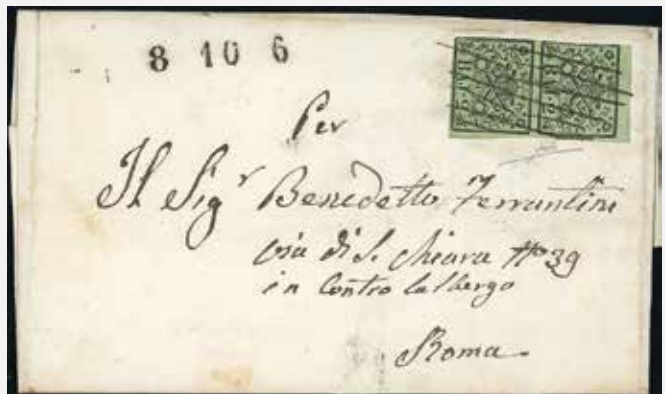 8 10 6
BAJ
BAJ
Per
Il Sigr Benedetto Ferrantini
via di S. Chiara No 39
in Contro l'albergo
Roma